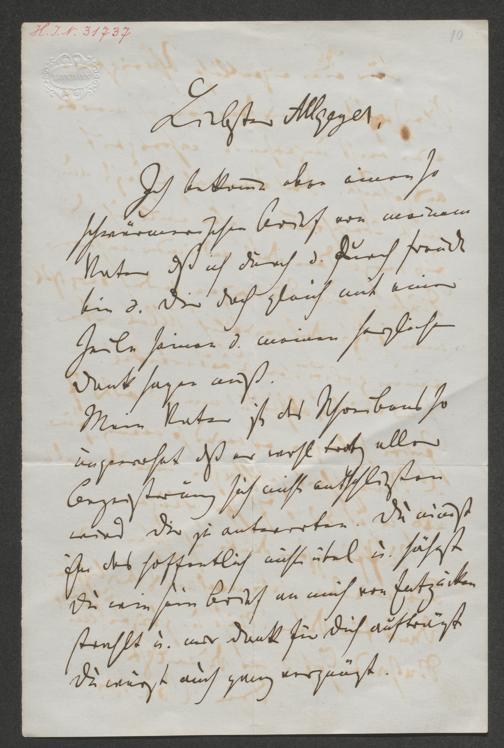 H. I. N. 31737
10
Liebster Allgeyer,
Ich bekomme eben einen so
schwärmerischen Brief von meinem
Vater daß ich durch u. durch Freude
bin u. Dir doch gleich mit einer
Zeile seinen u. meinen herzlichsten
Dank sagen muß.
Mein Vater ist des Schreibens so
ungewohnt daß er wohl trotz aller
Begeisterung sich nicht entschließen
wird Dir zu antworten. Du nimmst
ihm das hoffentlich nicht übel u. sähest
Du wie sein Brief an mich von Entzücken
strahlt u. mir Dank für Dich aufträgt
Du wärest auch ganz vergnügt.